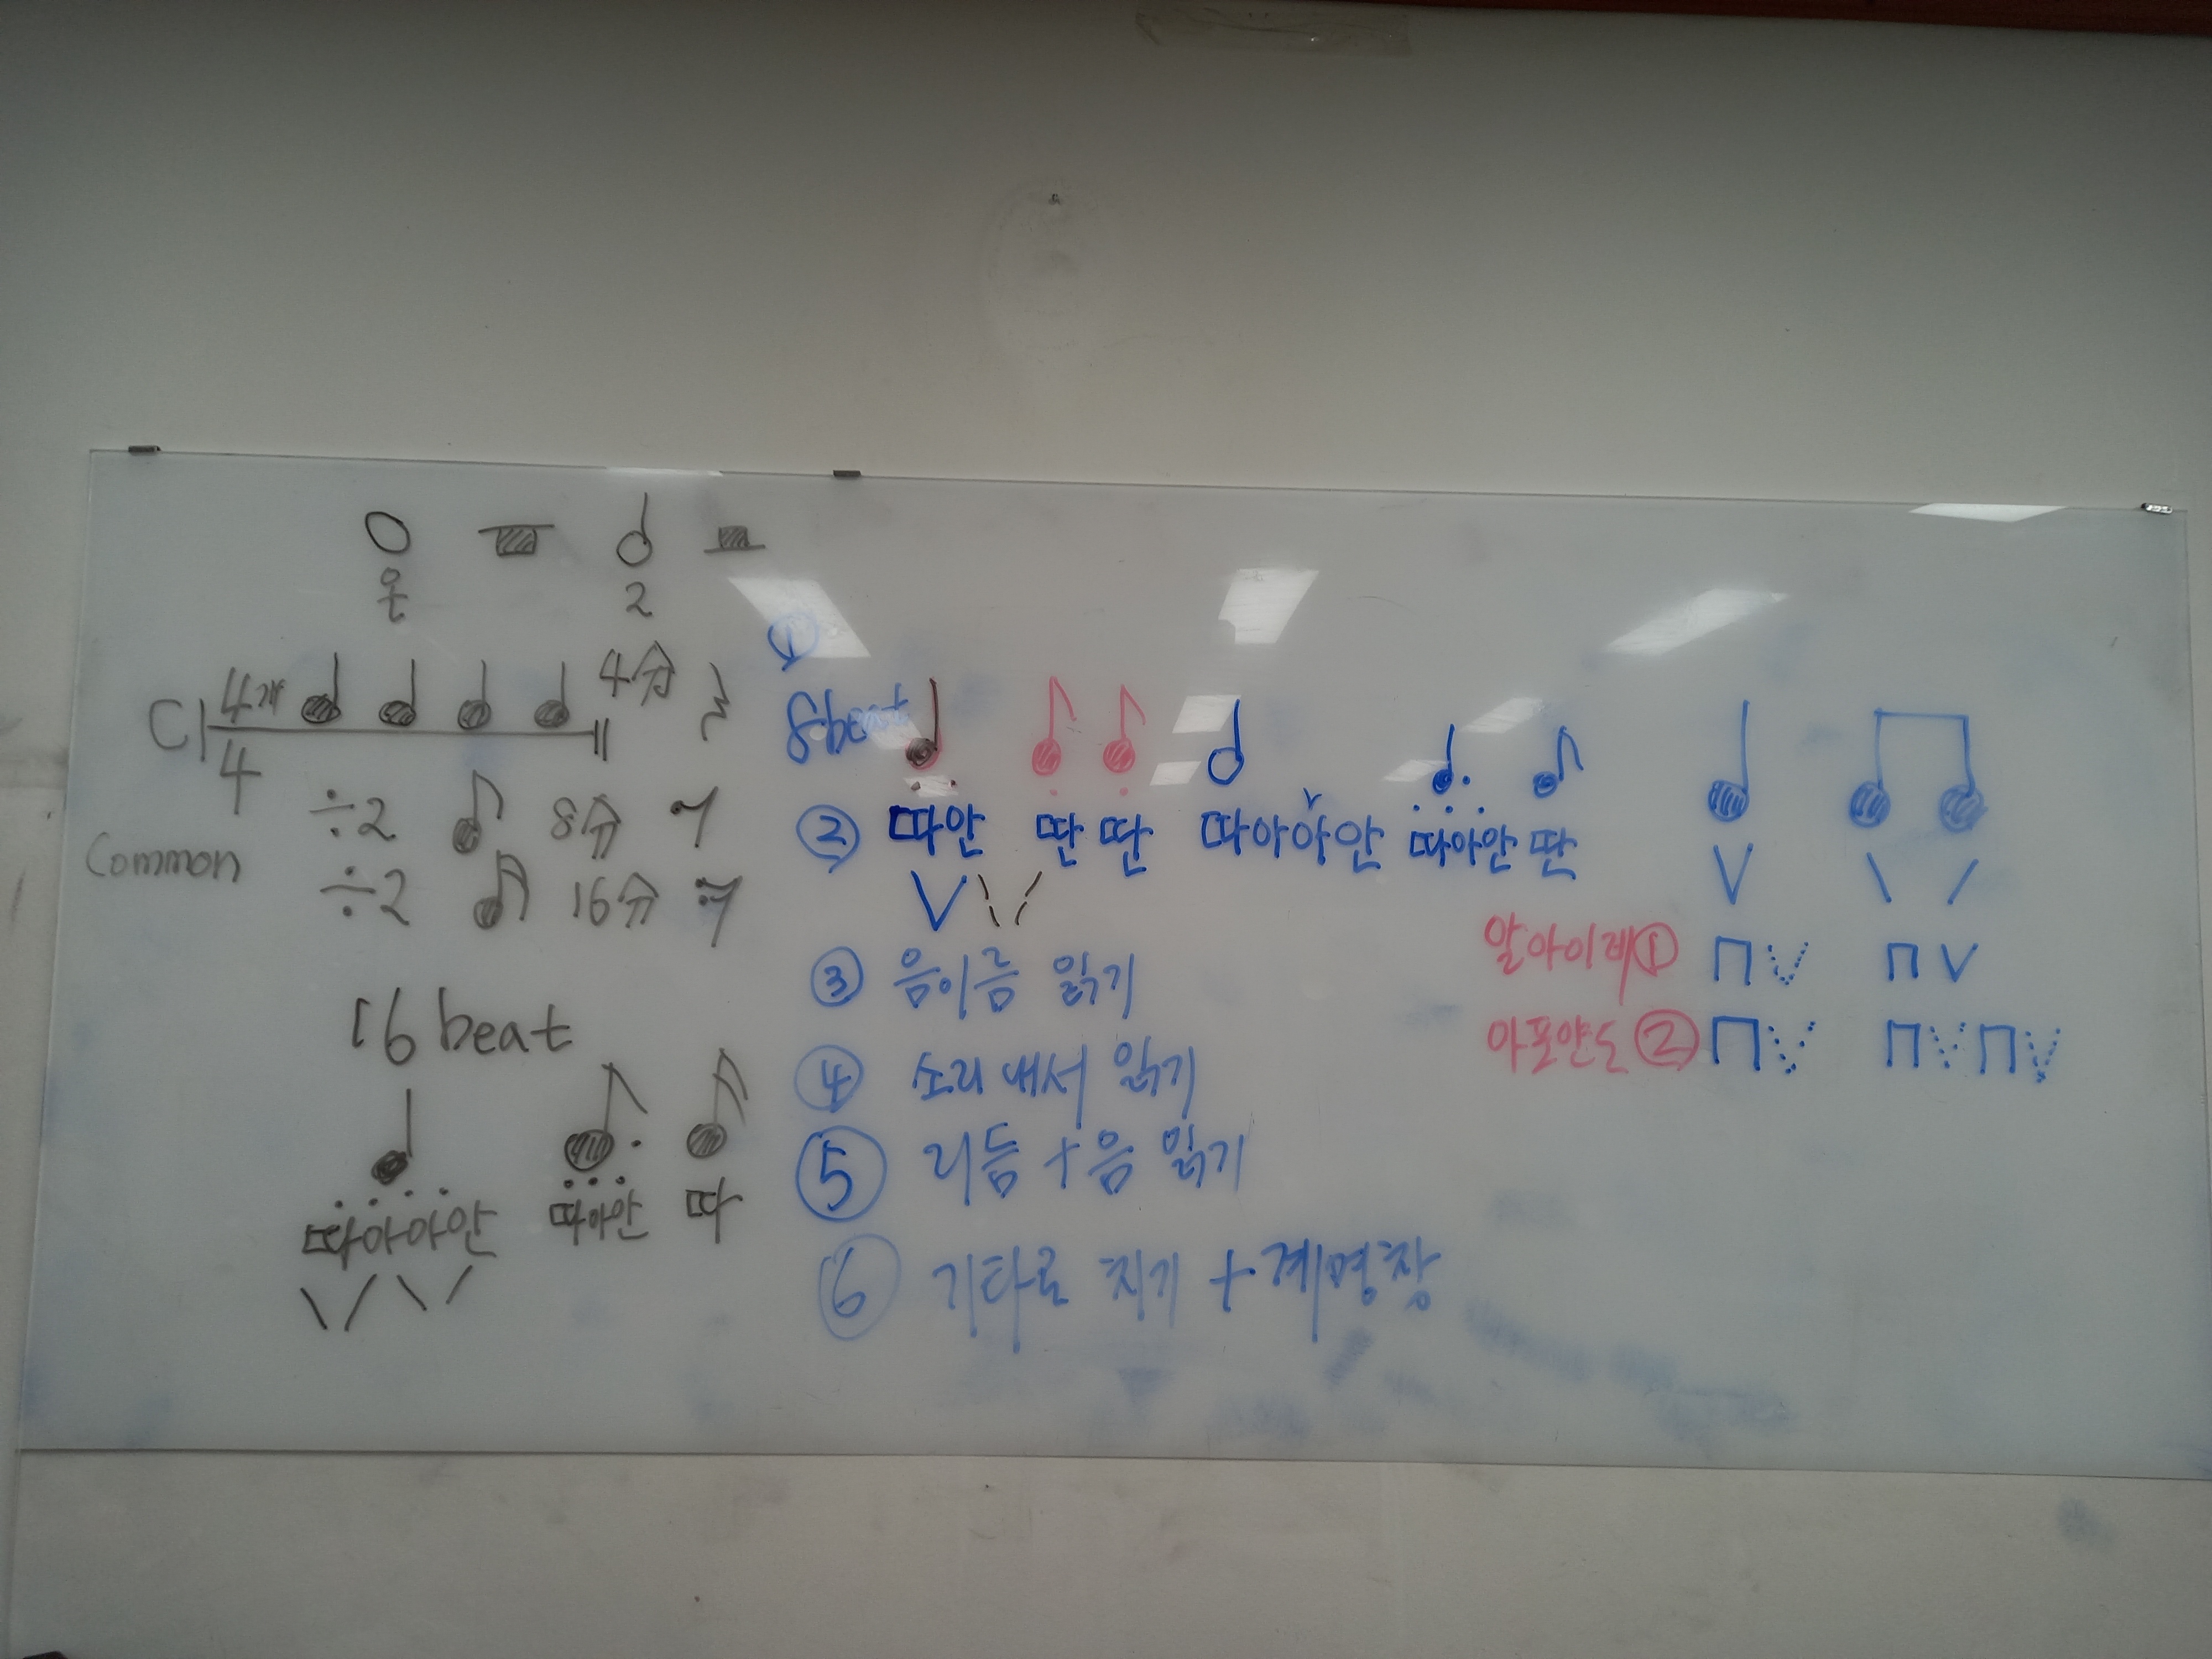 온 2
C 4개 4分
4
÷2 8分
Common
÷2 16分
16 beat
따아아안 따아안 따
①
8beat
② 따안 딴 딴 따아아안 따아안 딴
③ 음이름 읽기
④ 소리내서 읽기
⑤ 리듬+음 읽기
⑥ 기타로 치기 + 계명창
알아이레 ①
아포얀도 ②